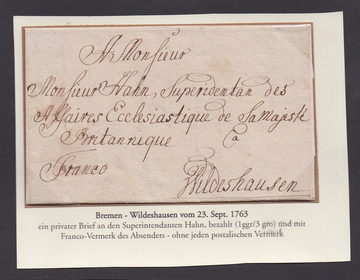 A Monsieur
Monsieur Hahn, Superidentan des
Affaires Ecclesiastique de sa Majesté
Britannique a
Franco Wildeshausen
Bremen - Wildeshausen vom 23. Sept. 1763
ein privater Brief an den Superintendanten Hahn, bezahlt (1ggr/3 gro) und mit
Franco-Vermerk des Absenders - ohne jeden postalischen Vermerk